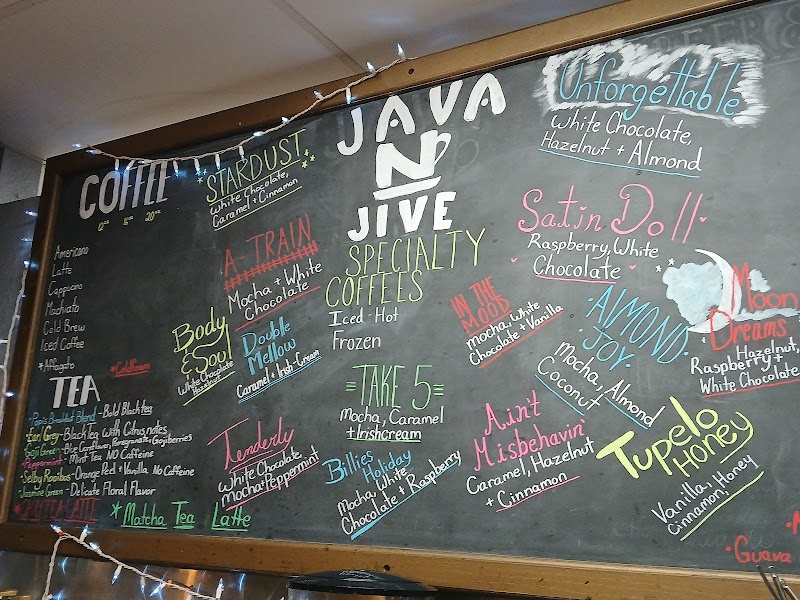 COFFEE
12oz 16oz 20oz
Americano
Latte
Cappucino
Machiato
Cold Brew
Iced Coffee
*Affogato
*Coldfoam
TEA
Bold Black tea
Earl Grey - Black Tea with Citrus notes
Goji Green - Pomegranate + Gojiberries
Peppermint - Mint Tea NO Caffeine
Selby Rooibos - Orange Peel + Vanilla No Caffeine
Jasmine Green - Delicate Floral Flavor
*Matcha Tea Latte
STARDUST
White Chocolate,
Caramel + Cinnamon
A-TRAIN
Mocha + White
Chocolate
Body
& Soul
White Chocolate
Hazelnut
Double
Mellow
Caramel + Irish-Cream
Tenderly
White Chocolate,
Mocha + Peppermint
JAVA
N
JIVE
SPECIALTY
COFFEES
Iced Hot
Frozen
=TAKE 5=
Mocha, Caramel
+ Irishcream
Billies Holiday
Mocha, White
Chocolate + Raspberry
IN THE
MOOD
Mocha, White
Chocolate + Vanilla
Ain't
Misbehavin'
Caramel, Hazelnut
+ Cinnamon
Unforgettable
White Chocolate,
Hazelnut + Almond
Satin Doll
Raspberry, White
Chocolate
ALMOND
JOY
Mocha, Almond
Coconut
Moon
Dreams
Hazelnut,
Raspberry +
White Chocolate
Tupelo
HONEY
Vanilla, Honey
Cinnamon,
Guava